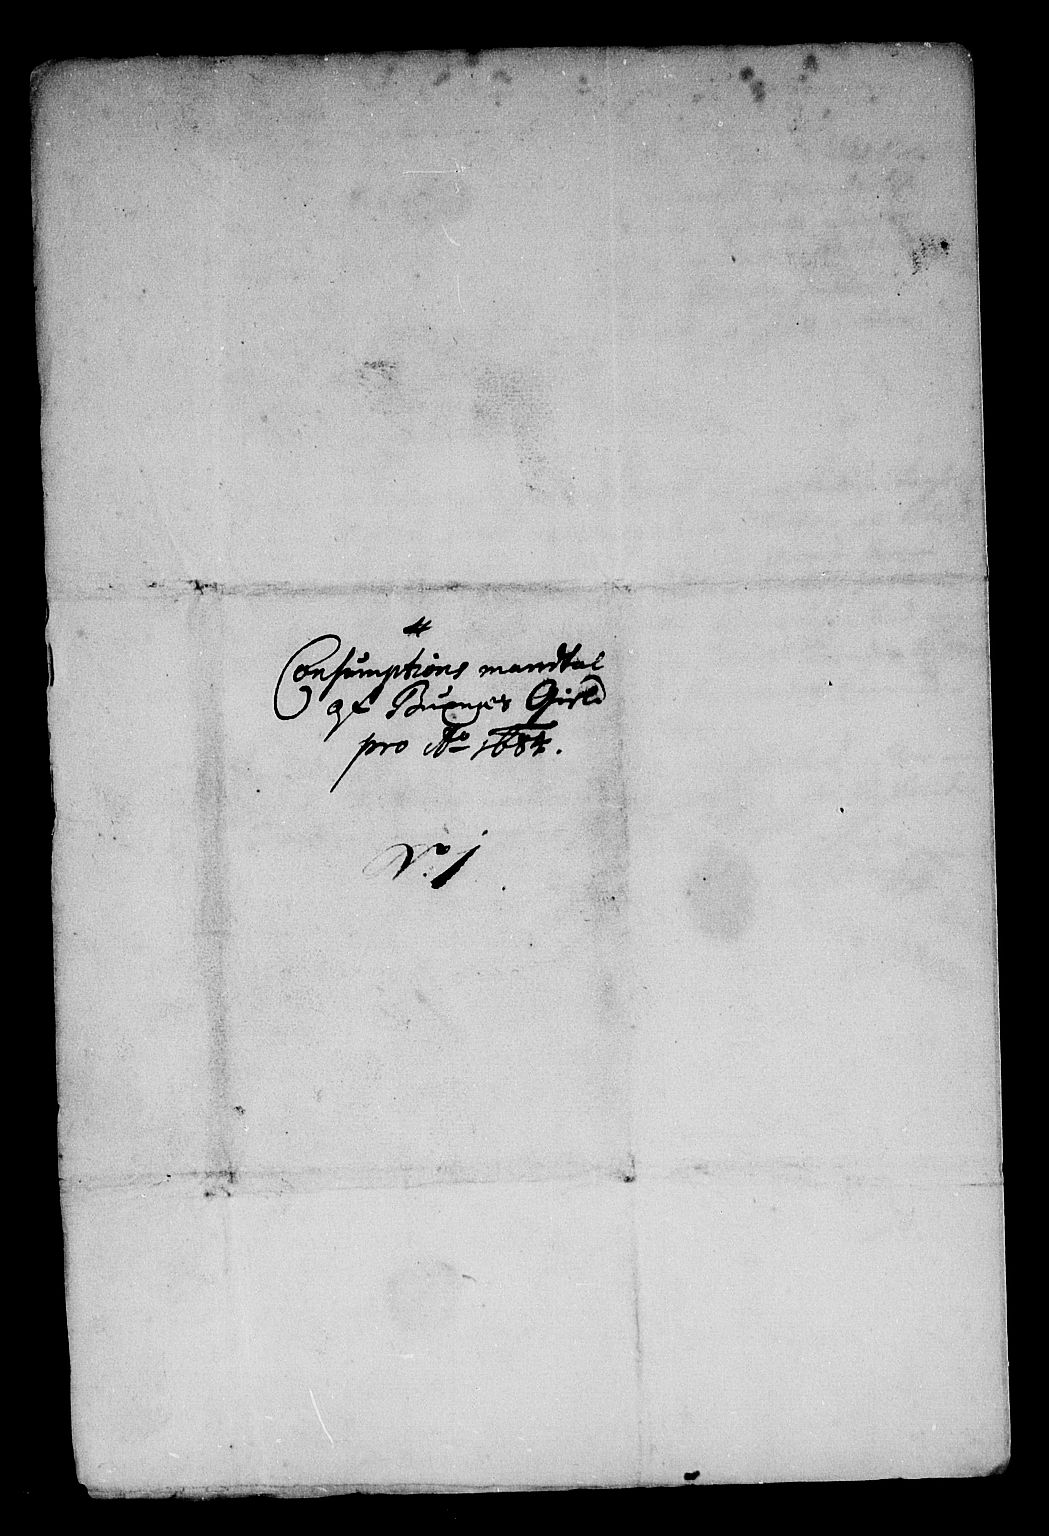 Consumptions mandtal
af Bunæs Gield
pro Ao 1684.
No 1.